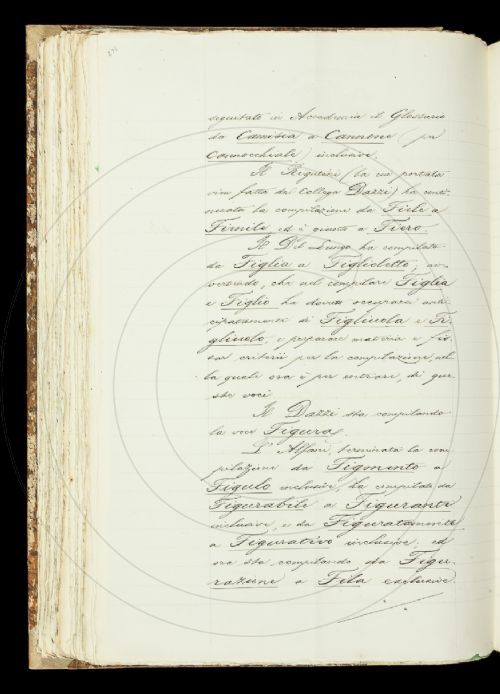 seguitato in Accademia il Glossario
da Camicia a Cannone (per
Cannocchiale) inclusive.
Il Rigutini (la cui portata
vien fatta dal Collega Dazzi) ha conti-
nuata la compilazione da Fiele a
Fienile, ed è giunto a Fiero.
Il Del Lungo ha compilato
da Figlia a Figlioletto, av-
vertendo, che nel compilare Figlia
e Figlio ha dovuto occuparsi anti-
cipatamente di Figliuola e Fi-
gliuolo, e preparare materia e fis-
sar criterii per la compilazione, nel-
la quale ora è per entrare, di que-
ste voci.
Il Dazzi sta compilando
la voce Figura.
L' Alfani, terminata la com-
pilazione da Figmento a
Figulo inclusive, ha compilato da
Figurabile a Figurante
inclusive, e da Figuratamente
a Figurativo inclusive. ed
ora sta compilando da Figu-
razione a Fila exclusive.